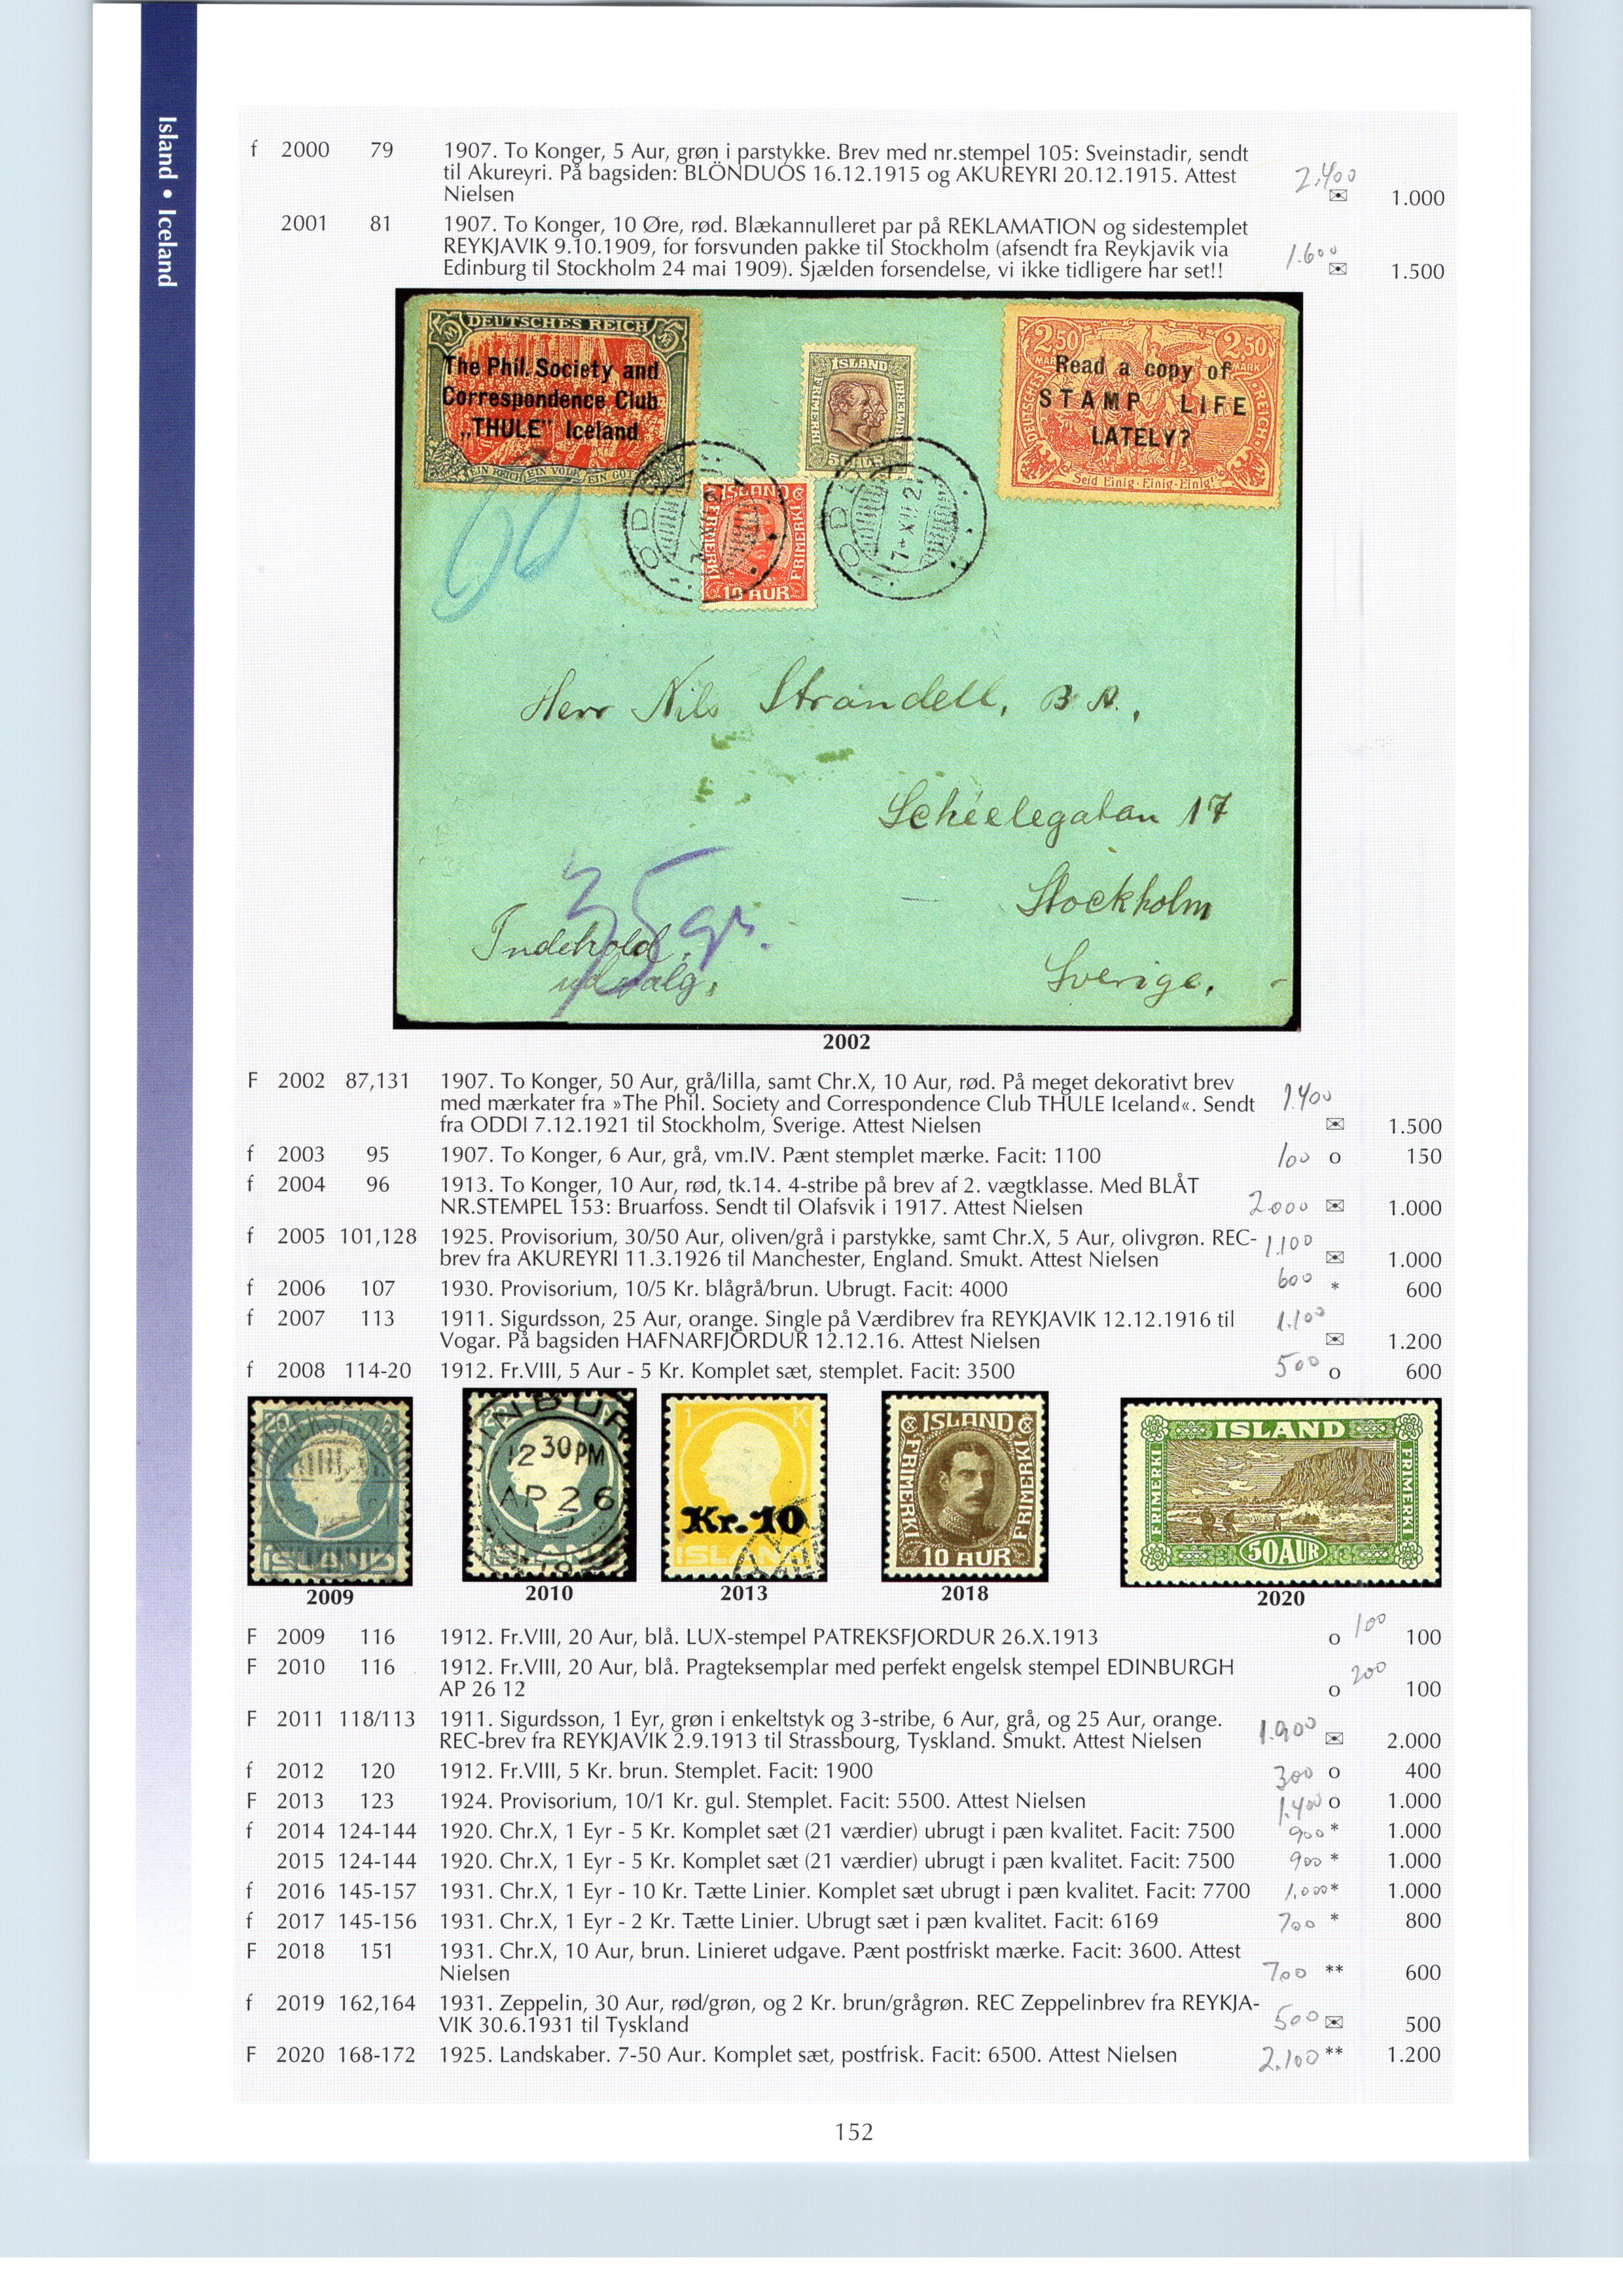 Island • Iceland
f 2000 79 1907. To Konger, 5 Aur, grøn i parstykke. Brev med nr.stempel 105: Sveinstadir, sendt
til Akureyri. På bagsiden: BLÖNDUOS 16.12.1915 og AKUREYRI 20.12.1915. Attest
Nielsen 2.400 ✉ 1.000
2001 81 1907. To Konger, 10 Øre, rød. Blækannulleret par på REKLAMATION og sidestemplet
REYKJAVIK 9.10.1909, for forsvunden pakke til Stockholm (afsendt fra Reykjavik via
Edinburg til Stockholm 24 mai 1909). Sjælden forsendelse, vi ikke tidligere har set!! 1.600 ✉ 1.500
DEUTSCHES REICH
The Phil. Society and
Correspondence Club
„THULE" Iceland
EIN REICH EIN VOLK EIN GOTT
ISLAND
FRIMERKI FRIMERKI
50 AUR
2,50 2,50
MARK MARK
Read a copy of
STAMP LIFE
LATELY?
DEUTSCHES REICH
Seid Einig·Einig·Einig!
ISLAND
FRIMERKI FRIMERKI
10 AUR
ODDI
7.XII.21
60
Herr Nils Strandell, B.A.,
Scheelegatan 17
Stockholm
Sverige.
35 gr.
Indehold.
udvalg.
2002
F 2002 87,131 1907. To Konger, 50 Aur, grå/lilla, samt Chr.X, 10 Aur, rød. På meget dekorativt brev
med mærkater fra »The Phil. Society and Correspondence Club THULE Iceland«. Sendt
fra ODDI 7.12.1921 til Stockholm, Sverige. Attest Nielsen ✉ 1.500
f 2003 95 1907. To Konger, 6 Aur, grå, vm.IV. Pænt stemplet mærke. Facit: 1100 100 o 150
f 2004 96 1913. To Konger, 10 Aur, rød, tk.14. 4-stribe på brev af 2. vægtklasse. Med BLÅT
NR.STEMPEL 153: Bruarfoss. Sendt til Olafsvik i 1917. Attest Nielsen 2.000 ✉ 1.000
f 2005 101,128 1925. Provisorium, 30/50 Aur, oliven/grå i parstykke, samt Chr.X, 5 Aur, olivgrøn. REC-
brev fra AKUREYRI 11.3.1926 til Manchester, England. Smukt. Attest Nielsen 1.100 ✉ 1.000
f 2006 107 1930. Provisorium, 10/5 Kr. blågrå/brun. Ubrugt. Facit: 4000 600 * 600
f 2007 113 1911. Sigurdsson, 25 Aur, orange. Single på Værdibrev fra REYKJAVIK 12.12.1916 til
Vogar. På bagsiden HAFNARFJÖRDUR 12.12.16. Attest Nielsen 1.100 ✉ 1.200
f 2008 114-20 1912. Fr.VIII, 5 Aur - 5 Kr. Komplet sæt, stemplet. Facit: 3500 500 o 600
20
ISLAND
1230PM
AP 26
12
ISLAND
1 K
Kr. 10
ISLAND
ISLAND
FRIMERKI FRIMERKI
10 AUR
ISLAND
FRIMERKI FRIMERKI
50AUR
2009 2010 2013 2018 2020
F 2009 116 1912. Fr.VIII, 20 Aur, blå. LUX-stempel PATREKSFJORDUR 26.X.1913 o 100 100
F 2010 116 1912. Fr.VIII, 20 Aur, blå. Pragteksemplar med perfekt engelsk stempel EDINBURGH
AP 26 12 o 200 100
F 2011 118/113 1911. Sigurdsson, 1 Eyr, grøn i enkeltstyk og 3-stribe, 6 Aur, grå, og 25 Aur, orange.
REC-brev fra REYKJAVIK 2.9.1913 til Strassbourg, Tyskland. Smukt. Attest Nielsen 1.900 ✉ 2.000
f 2012 120 1912. Fr.VIII, 5 Kr. brun. Stemplet. Facit: 1900 300 o 400
F 2013 123 1924. Provisorium, 10/1 Kr. gul. Stemplet. Facit: 5500. Attest Nielsen 1.400 o 1.000
f 2014 124-144 1920. Chr.X, 1 Eyr - 5 Kr. Komplet sæt (21 værdier) ubrugt i pæn kvalitet. Facit: 7500 900 * 1.000
2015 124-144 1920. Chr.X, 1 Eyr - 5 Kr. Komplet sæt (21 værdier) ubrugt i pæn kvalitet. Facit: 7500 900 * 1.000
f 2016 145-157 1931. Chr.X, 1 Eyr - 10 Kr. Tætte Linier. Komplet sæt ubrugt i pæn kvalitet. Facit: 7700 1.000 * 1.000
f 2017 145-156 1931. Chr.X, 1 Eyr - 2 Kr. Tætte Linier. Ubrugt sæt i pæn kvalitet. Facit: 6169 700 * 800
F 2018 151 1931. Chr.X, 10 Aur, brun. Linieret udgave. Pænt postfriskt mærke. Facit: 3600. Attest
Nielsen 700 ** 600
f 2019 162,164 1931. Zeppelin, 30 Aur, rød/grøn, og 2 Kr. brun/grågrøn. REC Zeppelinbrev fra REYKJA-
VIK 30.6.1931 til Tyskland 500 ✉ 500
F 2020 168-172 1925. Landskaber. 7-50 Aur. Komplet sæt, postfrisk. Facit: 6500. Attest Nielsen 2.100 ** 1.200
152